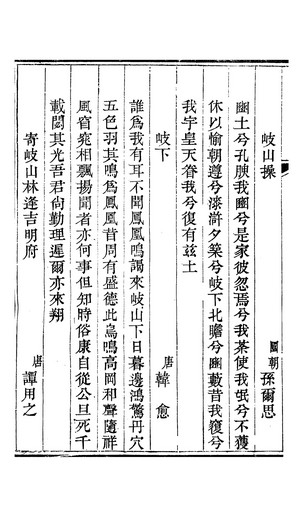 岐山操
國朝 孫爾思
豳土兮孔腴我豳兮是家彼忽焉兮我荼使我氓兮不獲
休以愉朝遵兮漆滸夕築兮岐下北瞻兮豳藪昔我復兮
我宇皇天眷我兮復有茲土
岐下
唐 韓愈
誰爲我有耳不聞鳳凰鳴朅來岐山下日暮邊鴻驚丹穴
五色羽其鳴爲鳳凰昔周有盛德此鳥鳴高岡和聲隨祥
風窅窕相飄揚聞者亦何事但知時俗康自從公旦死千
載閟其光吾君尙勤理遲爾亦來翔
寄岐山林逢吉明府
唐 譚用之